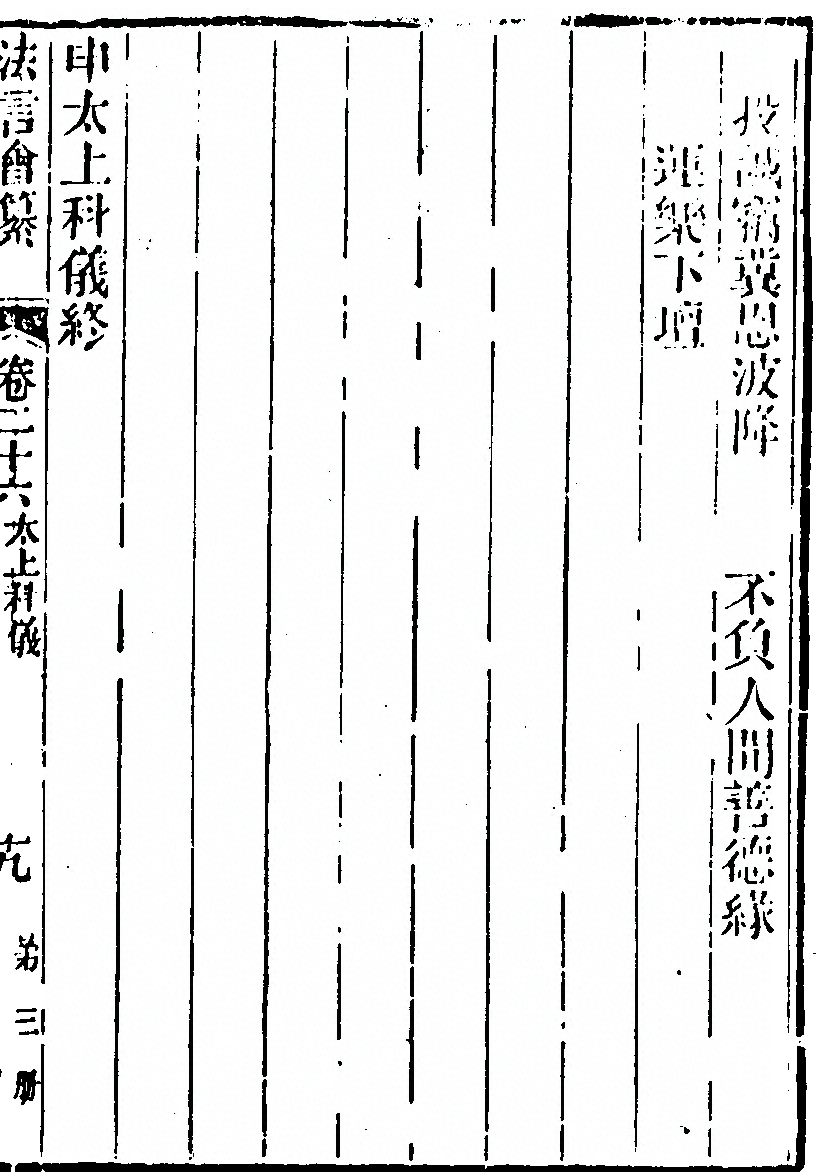 投誠窃冀恩波降　不負人間善德緣
運樂下壇
申太上科儀終
法言會纂　卷二十六　太上科儀　十九　第三册